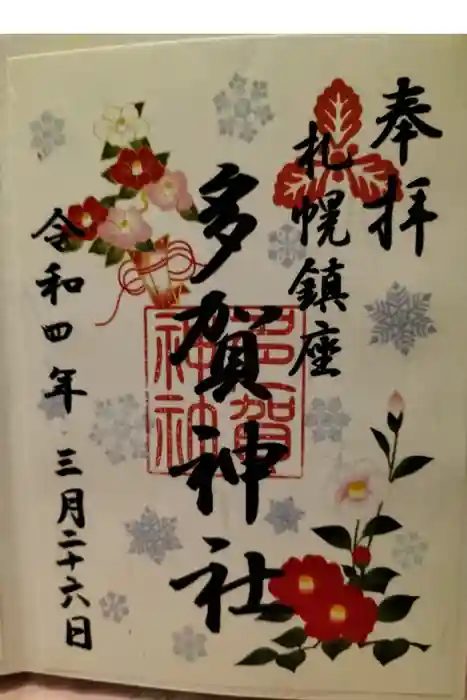 奉拝
札幌鎮座
多賀神社
多賀
神社
令和四年
三月二十六日